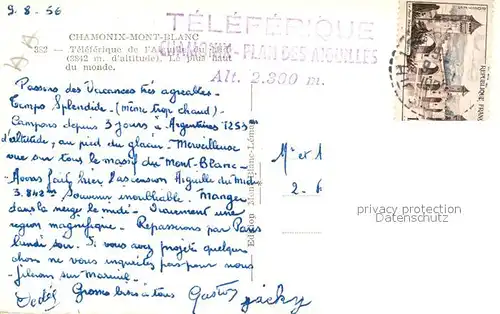 9.8.56
TÉLÉFÉRIQUE
CHAMONIX-MONT-BLANC
382 - Téléférique de l'Aiguille du Midi
CHAMONIX - PLAN DES AIGUILLES
(3842 m. d'altitude). Le plus haut
du monde.
Alt. 2.300 m.
Passons des Vacances très agréables.
Temps Splendide - (même trop chaud) -
Campons depuis 3 jours à Argentières 1253 m
d'altitude, au pied du glacier - Merveilleuse
vue sur tous le massif du Mont-Blanc -
Avons fait hier l'ascension Aiguille du Midi
3.842m Souvenir inoubliable. Manger
dans la neige le midi - Vraiment une
région magnifique - Repassons par Paris
lundi soir. Si vous avez projeté quelque
chose ne vous inquiétez pas pour nous
filons sur Mareuil -
Grosses bises à tous
Dédé
Jacky
REPUBLIQUE FRANÇAISE
privacy protection
www.oldthing.de